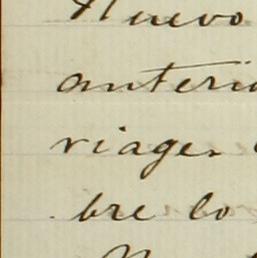 Nuevo
anteri
viage.
bre lo